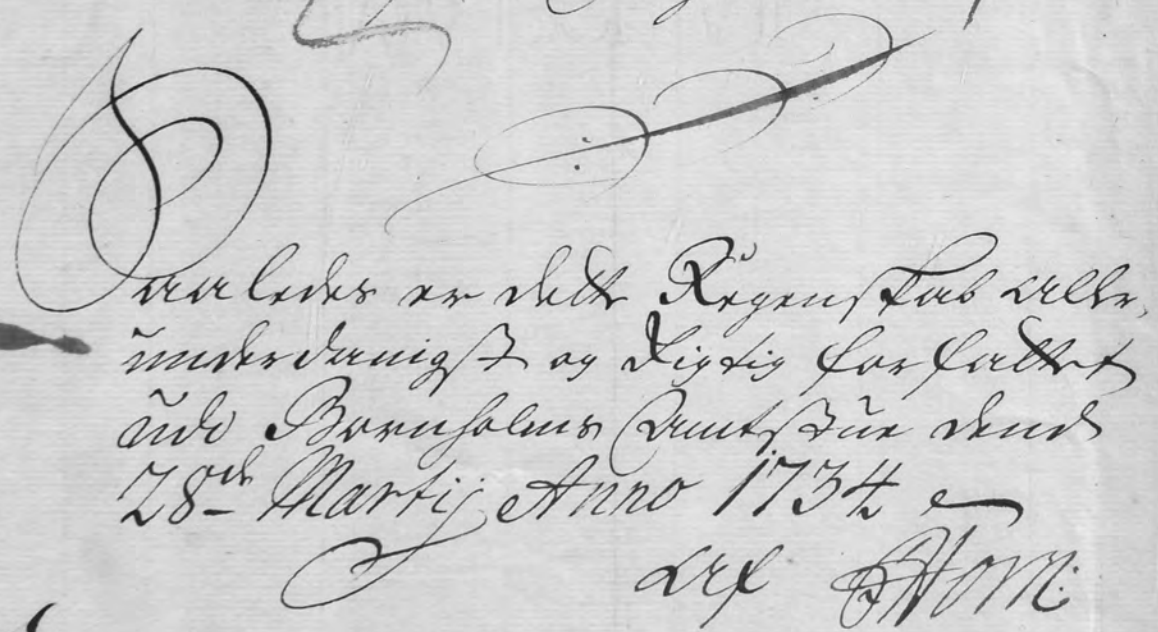 Saaledes er dette Regenskab aller,
underdanigst og Rigtig forfattet
udi Bornholms Amtstue dend
28de Martij Anno 1734
Af